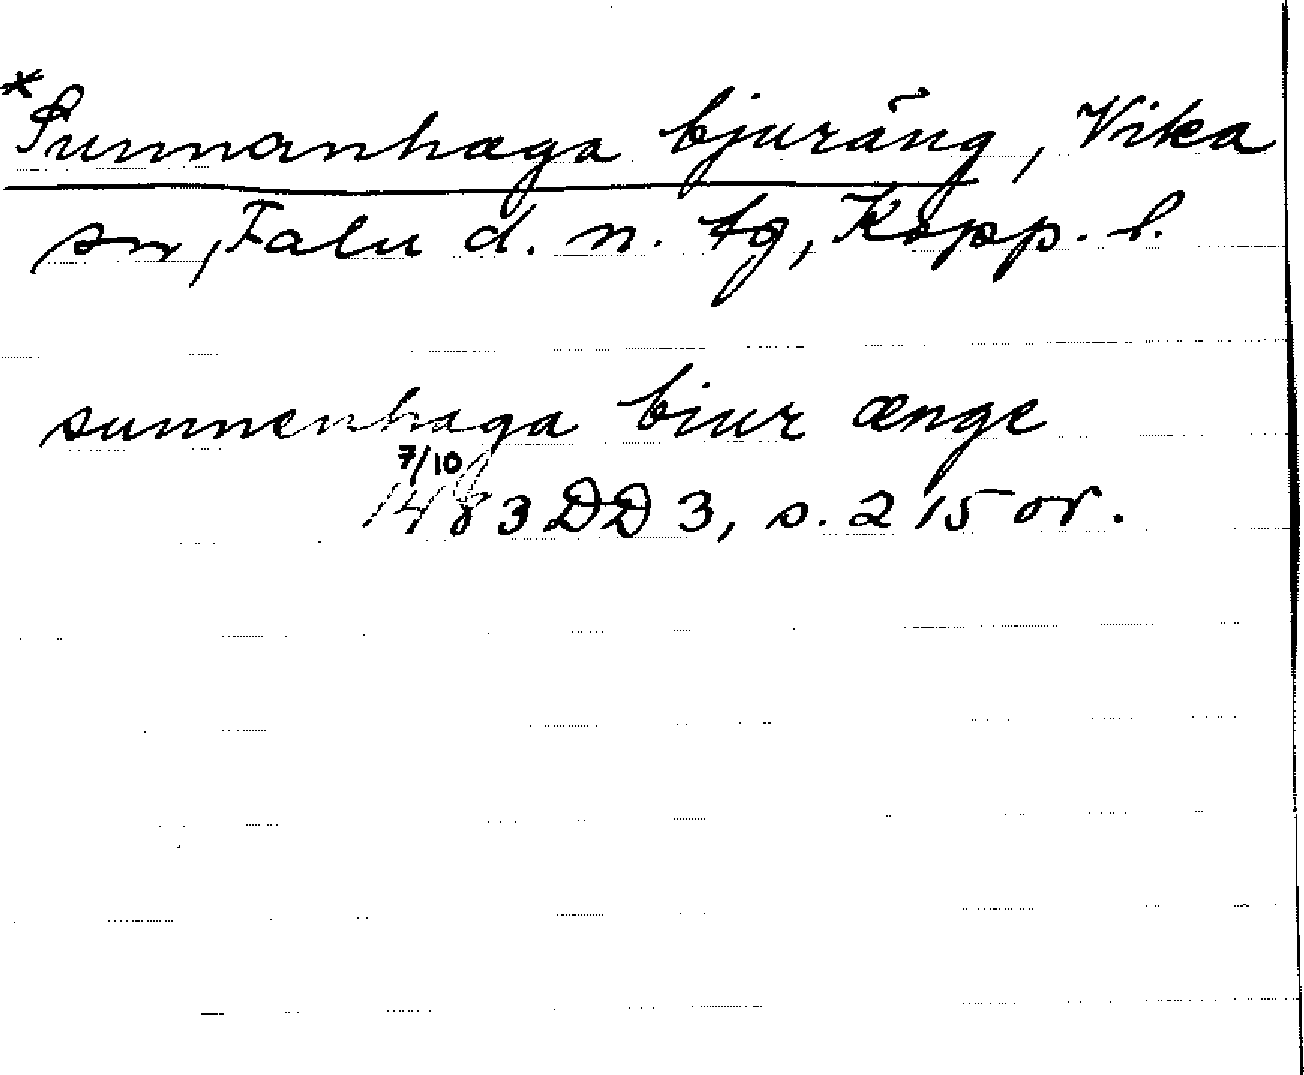 *Sunnanhaga bjuräng, Vika
sn, Falu d. n. tg, Kopp. l.
sunnenhaga biur ænge
7/10
1483 DD 3, s. 215 or.